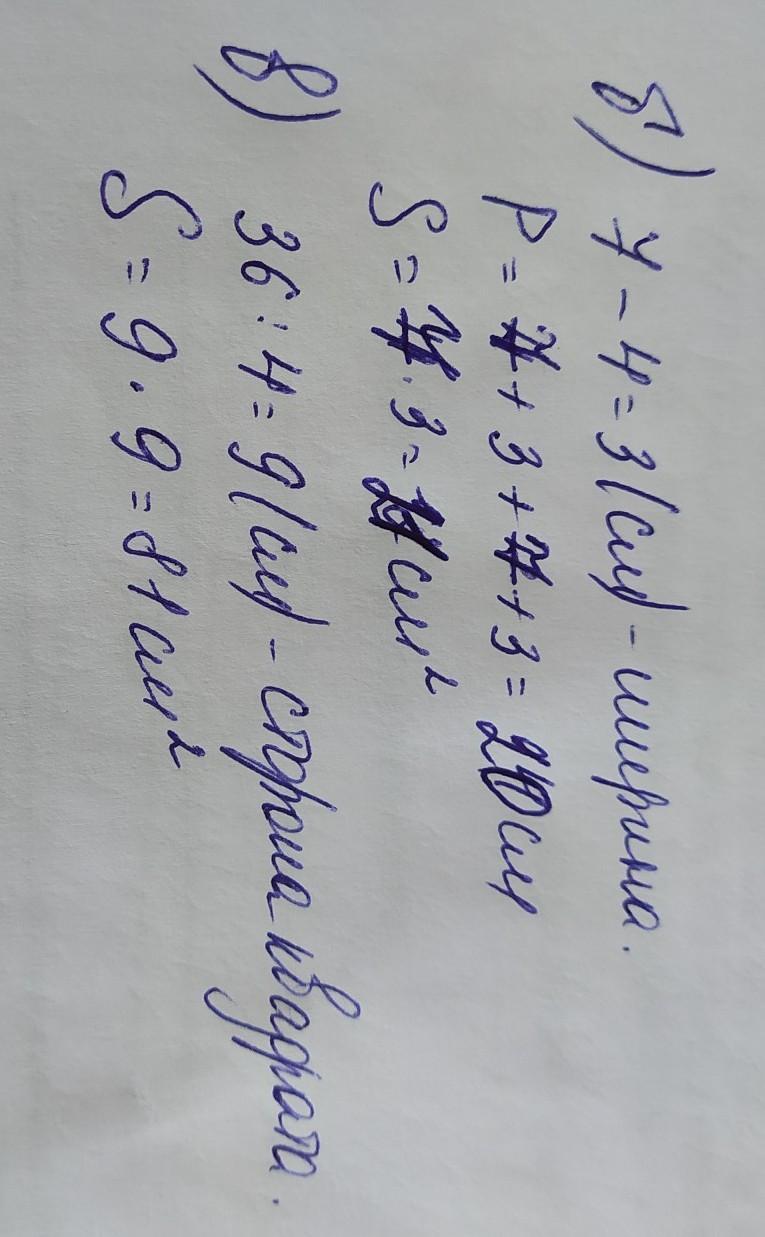 б) 7 - 4 = 3 (см) - ширина.
P = 7 + 3 + 7 + 3 = 20 см
S = 7 · 3 = 21 см²
в) 36 : 4 = 9 (см) - сторона квадрата.
S = 9 · 9 = 81 см²